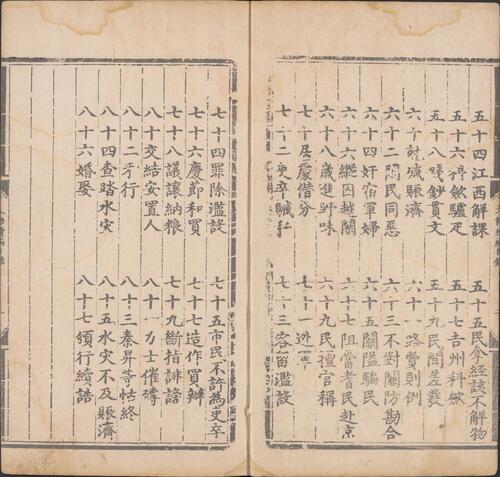 五十四江西解課 五十五民拿經該不解物
五十六科斂驢疋 五十七吉州科斂
五十八錢鈔貫文 五十九民間差發
六十剋減賑濟 六十一路費則例
六十二閑民同惡 六十三不對關防勘合
六十四奸宿軍婦 六十五關隘騙民
六十六縱囚越關 六十七阻當耆民赴京
六十八歲進野味 六十九民擅官稱
七十居處僭分 七十一逃軍
七十二吏卒贓私 七十三容留濫設
七十四罪除濫設 七十五市民不許為吏卒
七十六慶節和買 七十七造作買辦
七十八議讓納糧 七十九斷指誹謗
八十交結安置人 八十一力士催磚
八十二牙行 八十三秦昇等怙終
八十四查踏水災 八十五水災不及賑濟
八十六婚娶 八十七頒行續誥